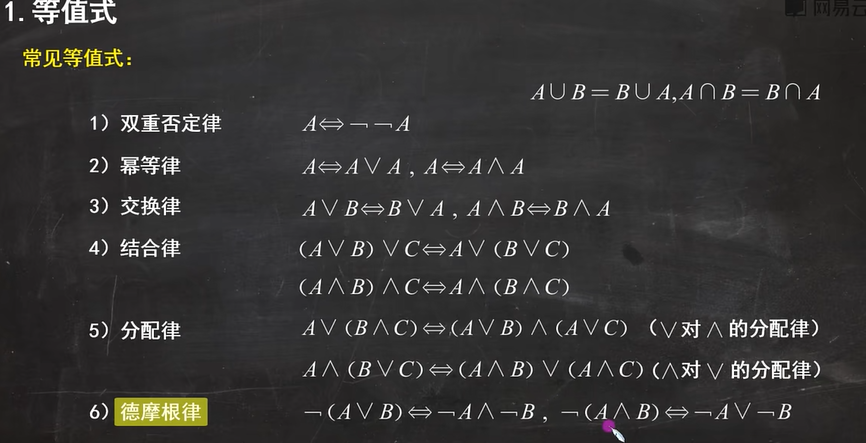 1.等值式
网易云
常见等值式：
A∪B=B∪A,A∩B=B∩A
1）双重否定律 A⇔¬¬A
2）幂等律 A⇔A∨A , A⇔A∧A
3）交换律 A∨B⇔B∨A , A∧B⇔B∧A
4）结合律 (A∨B)∨C⇔A∨(B∨C)
(A∧B)∧C⇔A∧(B∧C)
5）分配律 A∨(B∧C)⇔(A∨B)∧(A∨C)（∨对∧的分配律）
A∧(B∨C)⇔(A∧B)∨(A∧C)(∧对∨的分配律）
6）德摩根律 ¬(A∨B)⇔¬A∧¬B , ¬(A∧B)⇔¬A∨¬B